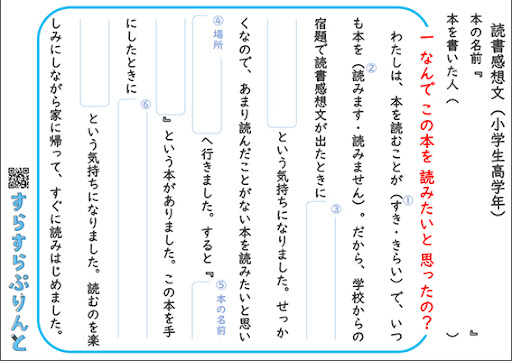 読書感想文（小学生高学年）
本の名前『　　　』
本を書いた人（　　　）
一 なんで この本を 読みたいと 思ったの？
わたしは、本を読むことが（①すき・きらい）で、いつ
も本を（②読みます・読みません）。だから、学校からの
宿題で読書感想文が出たときに③
という気持ちになりました。せっか
くなので、あまり読んだことがない本を読みたいと思い
④場所　へ行きました。すると『⑤本の名前
』という本がありました。この本を手
にしたときに⑥
という気持ちになりました。読むのを楽
しみにしながら家に帰って、すぐに読みはじめました。
すらすらぷりんと